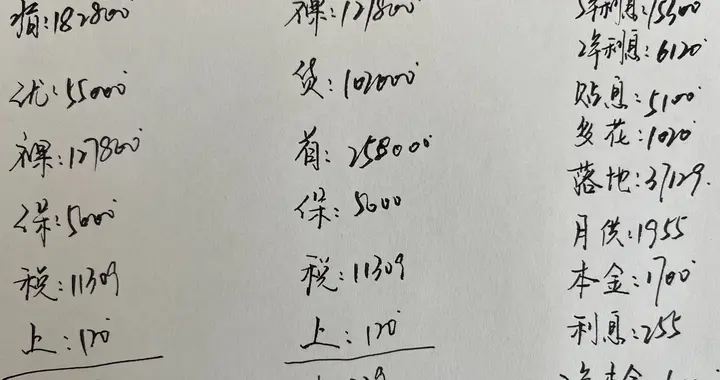 指:182800
优:55000
裸:127800
保:5000
税:11309
上:120
裸:127800
贷:102000
首:258000
保:5000
税:11309
上:120
5年利息:15300
2年利息:6120
贴息:5100
多花:1020
落地:37129.
月供:1955
本金:1700
利息:255
2年本金: